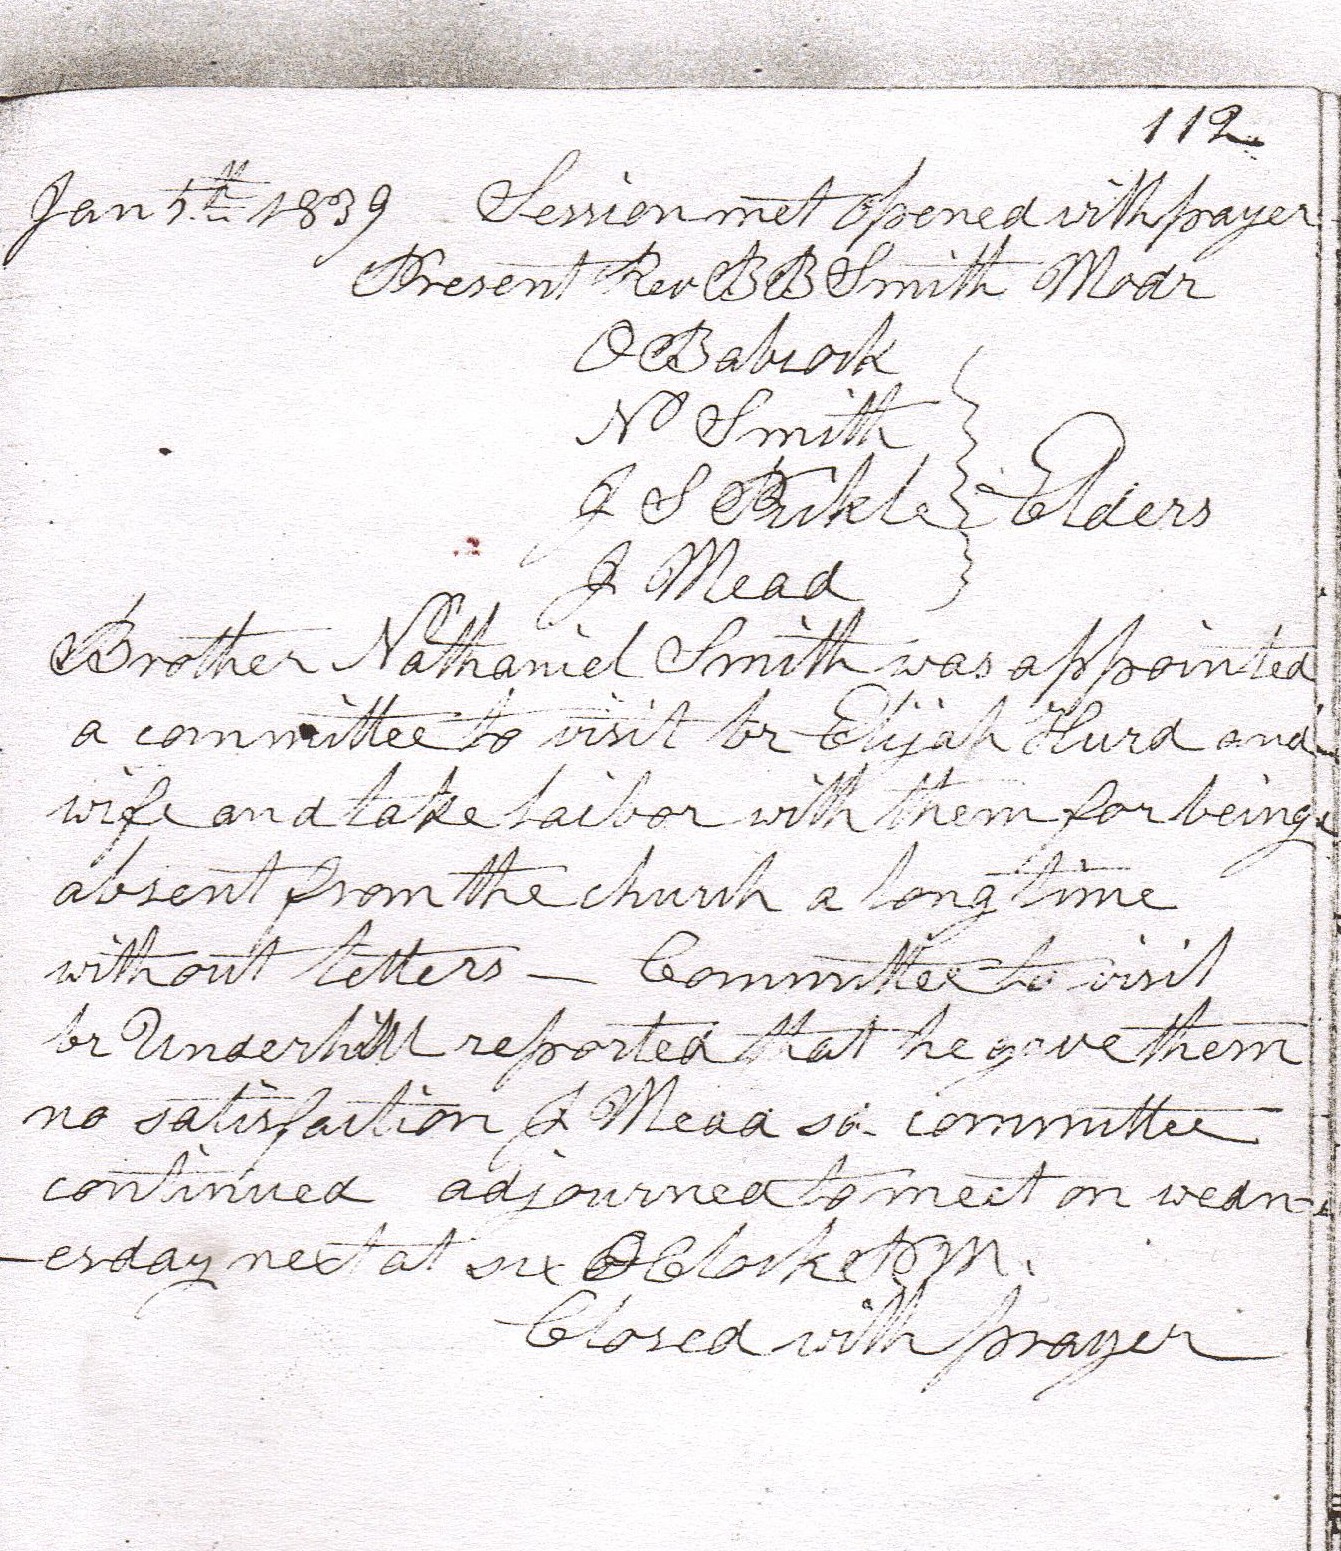 112
Jan 5th 1839 Session met opened with prayer
Present Rev B B Smith Modr
O Babcock
Nl Smith
J S Prikle Elders
J Mead
Brother Nathaniel Smith was appointed
a committee to visit br Elijah Hurd and
wife and take laibor with them for being
absent from the church a long time
without letters — Committee to visit
br Underhill reported that he gave them
no satisfaction J Mead committee
continued adjourned to meet on wedn-
-esday next at six O Clock P M.
Closed with prayer